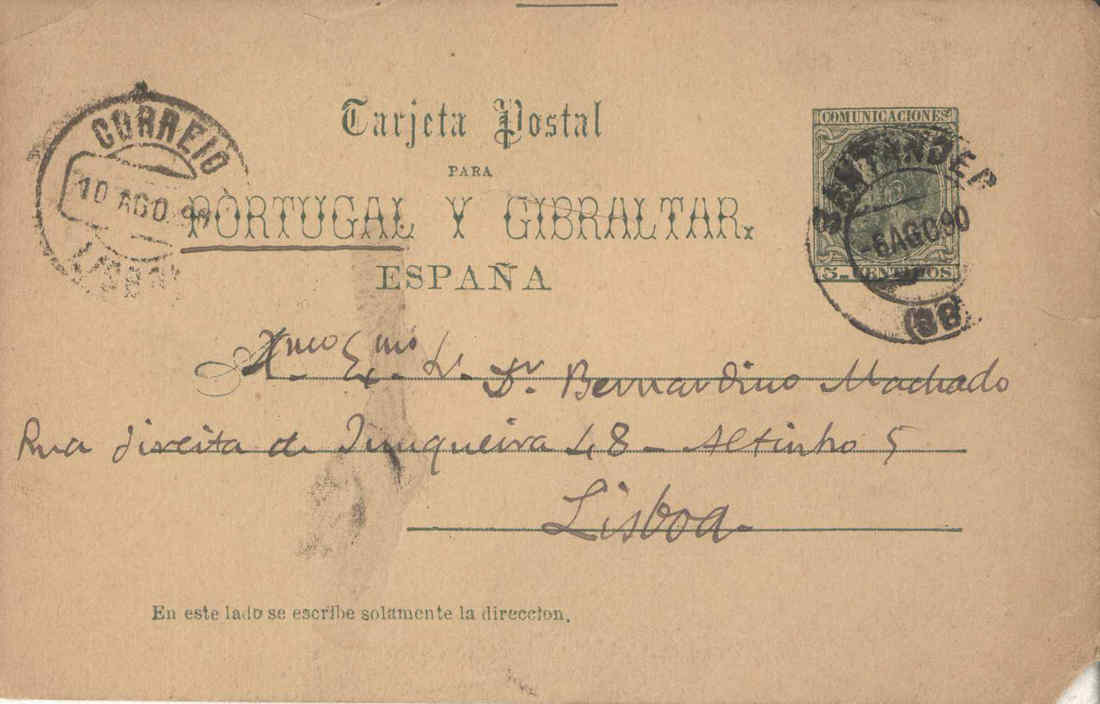 Tarjeta Postal
PARA
PORTUGAL Y GIBRALTAR.
ESPAÑA
CORREIO
10 AGO. 90
LISBOA
COMUNICACIONES
5 CENTIMOS
SANTANDER
6 AGO 90
Exmo Sr. Dr. Bernardino Machado
Rua direita da Junqueira 48 - Altinho 5
Lisboa.
En este lado se escribe solamente la direccion.